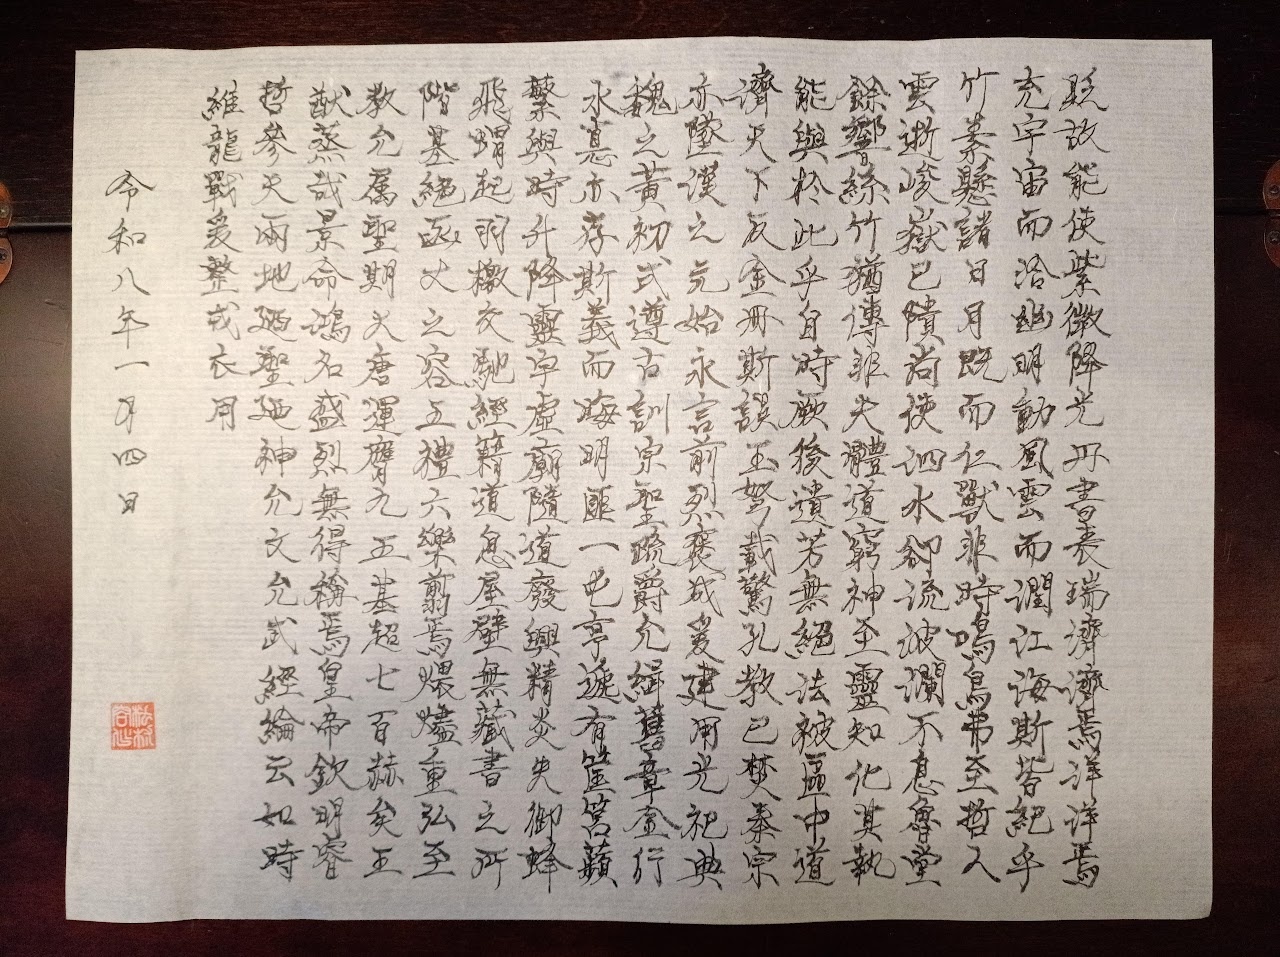 貺故能使紫微降光丹書表瑞濟濟焉洋洋焉
充宇宙而洽幽明動風雲而潤江海斯皆紀乎
竹素懸諸日月既而仁獸非時鳴鳥弗至哲人
雲逝峻嶽已隤尚使泗水卻流波瀾不息魯堂
餘響絲竹猶傳非夫體道窮神至靈知化其孰
能與於此乎自時厥後遺芳無絕法被區中道
濟天下及金冊斯誤玉弩載驚孔教已焚秦宗
亦墜漢之元始永言前烈褒成爰建用光祀典
魏之黃初式遵古訓宗聖疏爵允緝舊章金行
水悳亦存斯義而晦明匪一屯亨遞有筐筥蘋
蘩與時升降靈宇虛廟隨道廢興精炎失御蜂
飛蝟起羽檄交馳經籍道息屋壁無藏書之所
階基絕函丈之容五禮六樂翦焉煨燼重弘至
教允屬聖期大唐運膺九五基超七百赫矣王
猷蒸哉景命鴻名盛烈無得稱焉皇帝欽明睿
哲參天兩地迺聖迺神允文允武經綸云始時
維龍戰爰整戎衣用
令和八年一月四日